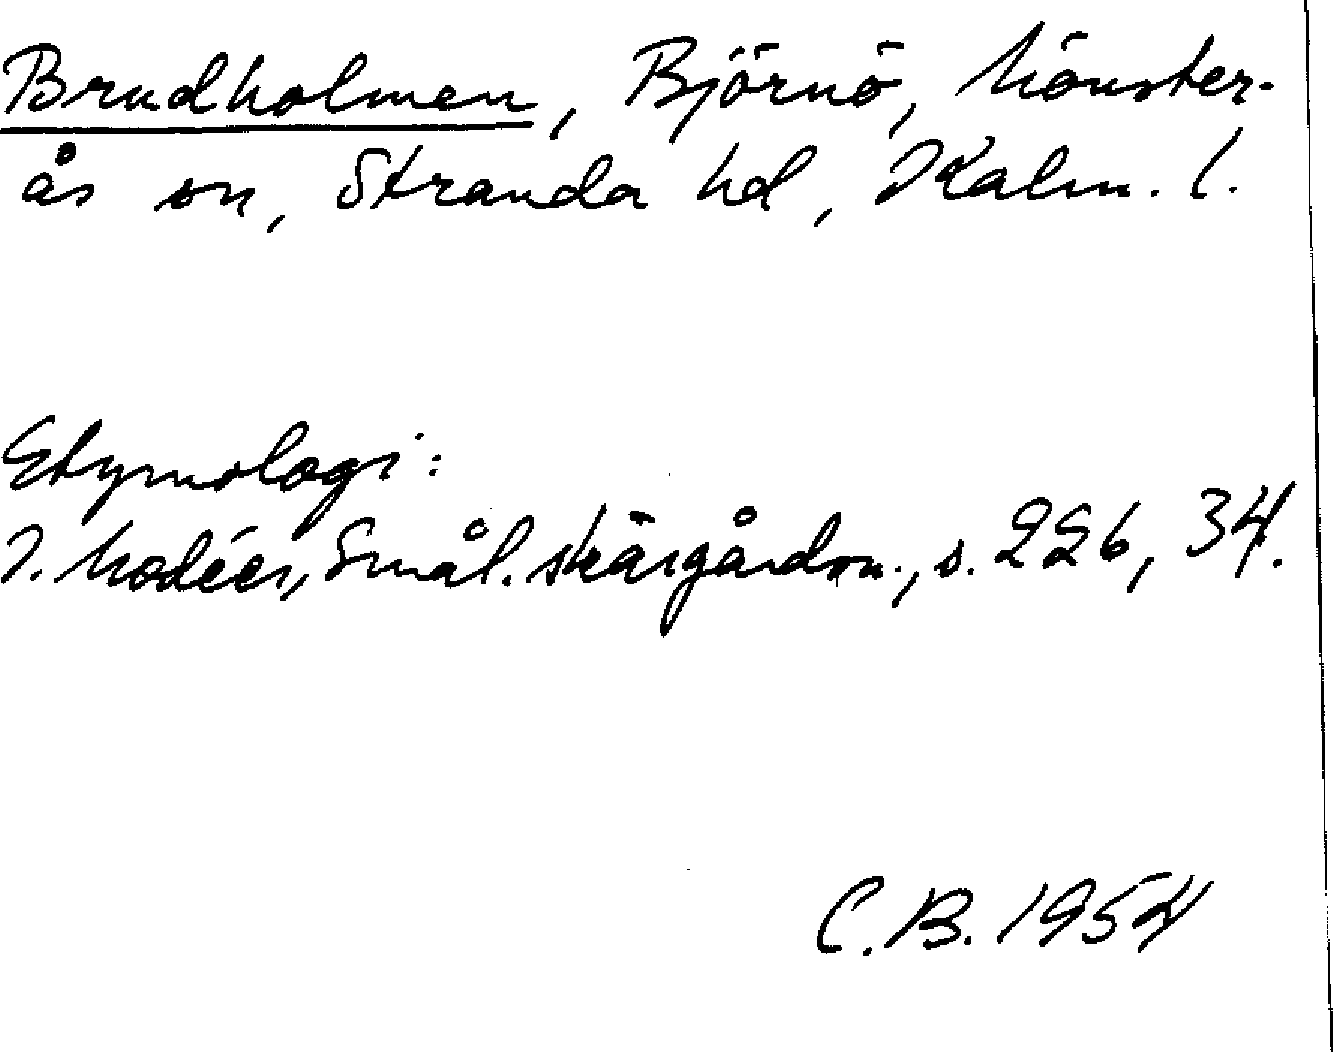 Brudholmen, Björnö, Mönster-
ås sn, Stranda hd, Kalm. l.
Etymologi:
I. Modéer, Smål. skärgårdsn., s. 226, 34.
C.B. 1954